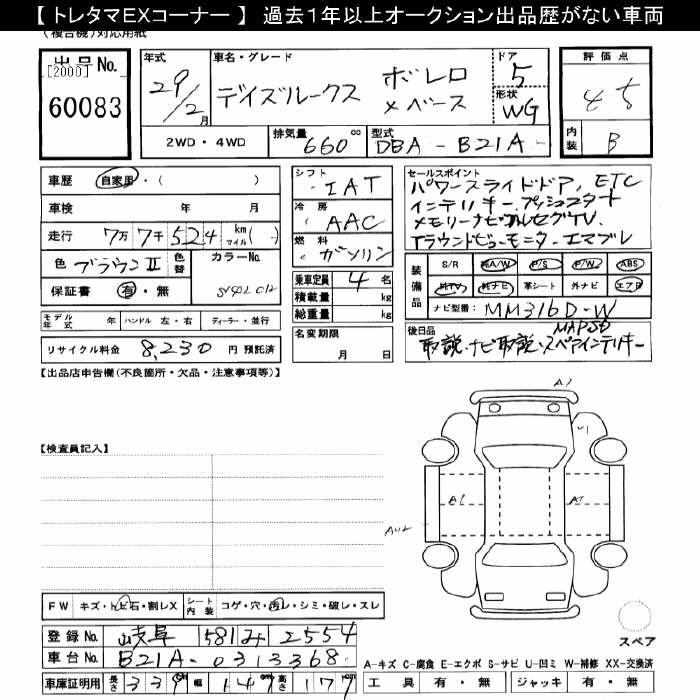 【 トレタマEXコーナー 】 過去１年以上オークション出品歴がない車両
(複合機)対応用紙
出品No.
[2000]
60083
年式
29/2月
車名・グレード
デイズルークス ボレロ
×ベース
ドア
5
形状
WG
評価点
4.5
内装
B
2WD・4WD
排気量 660 cc
型式 DBA - B21A -
車歴 自家用・( )
車検 年 月
走行 7万7千524 km マイル( )
色 ブラウンⅡ 色替
カラーNo.
保証書 有・無
モデル年式 年 ハンドル 左・右 ディーラー・並行
リサイクル料金 8,230 円 預託済
シフト IAT
冷房 AAC
燃料 ガソリン
乗車定員 4 名
積載量 kg
総重量 kg
名変期限
月 日
セールスポイント
パワースライドドア, ETC
インテリキー, プッシュスタート
メモリーナビフルセグTV.
アラウンドビューモニタ, エマブレ
装備品
S/R 純A/W P/S P/W ABS
純TV 純ナビ 革シート 外ナビ エアB
ナビ型番: MM316D-W
後日品
取説・ナビ取説・スペアインテリキー
【出品店申告欄(不良箇所・欠品・注意事項等)】
【検査員記入】
A1
U1
A1
A1
AU2
FW キズ・トビ石・割レX シート内装 コゲ・穴・汚レ・シミ・破レ・スレ
登録No. 岐阜 581み2554
車台No. B21A-0313368
車庫証明用 長さ 339 幅 147 高さ 177
スペア
A-キズ C-腐食 E-エクボ S-サビ U-凹ミ W-補修 XX-交換済
工具 有・無 ジャッキ 有・無